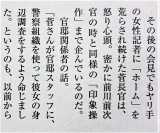 その後の会見でもヤリ手
の女性記者に「ホーム」を
荒らされ続けた菅官房は、
怒り心頭、密かに前川前次
官の時と同様の〝印象操
作〟まで企んでいるのだ。
官邸関係者の話。
「菅さんが官邸スタッフに、
警察組織を使って彼女の身
辺調査をするよう命じまし
た。というのも、以前から